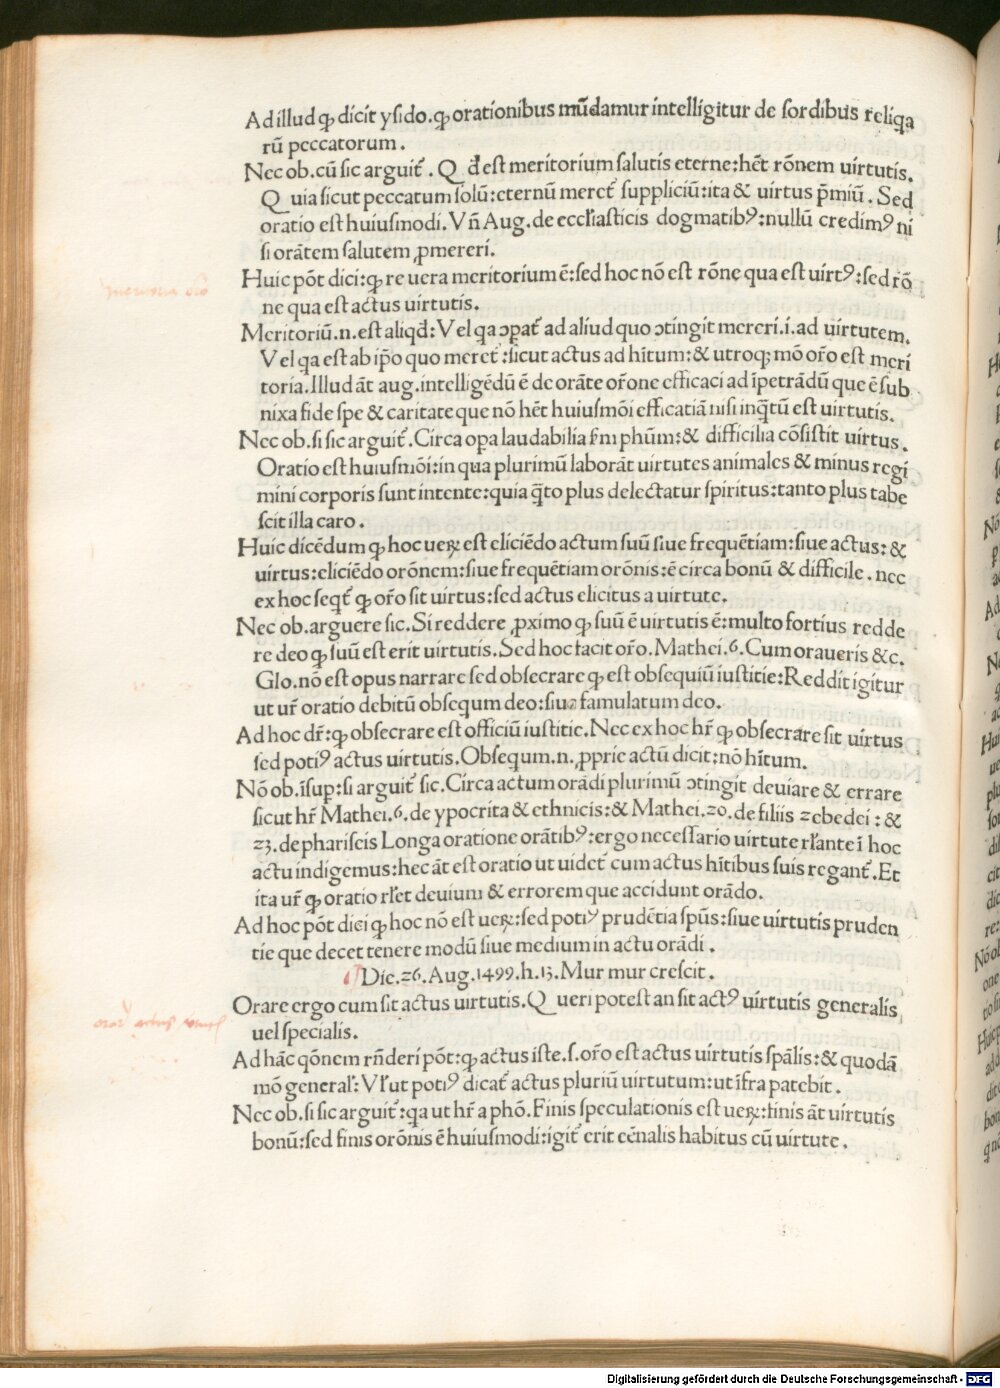 Ad illud ꝙ dicit ysido. ꝙ orationibus mūdamur intelligitur de sordibus reliqa
rū peccatorum.
Nec ob. cū sic arguit̄. Q d̄ est meritorium salutis eterne: hēt rōnem uirtutis.
Q uia sicut peccatum solū: eternū meret̄ suppliciū: ita & uirtus p̄miū. Sed
oratio est huiusmodi. Vn̄ Aug. de eccl̄iasticis dogmatibꝰ: nullū credimꝰ ni
si orātem salutem ꝓmereri.
Huic pōt dici: ꝙ re uera meritorium ē: sed hoc nō est rōne qua est uirtꝰ: sed rō
ne qua est actus uirtutis.
Meritoriū. n. est aliqd̄: Vel qa ↄpat̄ ad aliud quo ↄtingit mereri. i. ad uirtutem.
Vel qa est ab ip̄o quo meret̄: sicut actus ad hītum: & utroqꝫ mō or̄o est meri
toria. Illud āt aug. intelligēdū ē de orāte or̄one efficaci ad īpetrādū que ē sub
nixa fide spe & caritate que nō hēt huiusmōi efficatiā nisi inq̄tū est uirtutis.
Nec ob. si sic arguit̄. Circa opa laudabilia s̄m phūm: & difficilia cōsistit uirtus.
Oratio est huiusmōi: in qua plurimū laborāt uirtutes animales & minus regi
mini corporis sunt intente: quia q̄to plus delectatur spiritus: tanto plus tabe
scit illa caro.
Huic dicēdum ꝙ hoc ueꝝ est eliciēdo actum suū siue frequētiam: siue actus: &
uirtus: eliciēdo orōnem: siue frequētiam orōnis: ē circa bonū & difficile. nec
ex hoc seqt̄ ꝙ or̄o sit uirtus: sed actus elicitus a uirtute.
Nec ob. arguere sic. Si reddere ꝓximo ꝙ suū ē uirtutis ē: multo fortius redde
re deo ꝙ suū est erit uirtutis. Sed hoc facit or̄o. Mathei. 6. Cum oraueris &c.
Glo. nō est opus narrare sed obsecrare ꝙ est obsequiū iustitie: Reddit igitur
ut ur̄ oratio debitū obsequm deo: siue famulatum deo.
Ad hoc dr̄: ꝙ obsecrare est officiū iustitie. Nec ex hoc hr̄ ꝙ obsecrare sit uirtus
sed potiꝰ actus uirtutis. Obsequm. n. ꝓprie actū dicit: nō hītum.
Nō ob. īsup: si arguit̄ sic. Circa actum orādi plurimū ↄtingit deuiare & errare
sicut hr̄ Mathei. 6. de ypocrita & ethnicis: & Mathei. 20. de filiis zebedei: &
23. de phariseis Longa oratione orātibꝰ: ergo necessario uirtute rl̄ante ī hoc
actu indigemus: hec āt est oratio ut uidet̄ cum actus hītibus suis regant̄. Et
ita ur̄ ꝙ oratio rl̄et deuium & errorem que accidunt orādo.
Ad hoc pōt dici ꝙ hoc nō est ueꝝ: sed potiꝰ prudētia sp̄us: siue uirtutis pruden
tie que decet tenere modū siue medium in actu orādi.
Die. 26. Aug. 1499. h. 13. Mur mur crescit.
Orare ergo cum sit actus uirtutis. Q ueri potest an sit actꝰ uirtutis generalis
uel specialis.
Ad hāc qōnem rn̄deri pōt: ꝙ actus iste. s. or̄o est actus uirtutis spālis: & quodā
mō general̄: Vl̄ ut potiꝰ dicat̄ actus pluriū uirtutum: ut īfra patebit.
Nec ob. si sic arguit̄: qa ut hr̄ a phō. Finis speculationis est ueꝝ: finis āt uirtutis
bonū: sed finis orōnis ē huiusmodi: igit̄ erit cēnalis habitus cū uirtute.
Digitalisierung gefördert durch die Deutsche Forschungsgemeinschaft - DFG